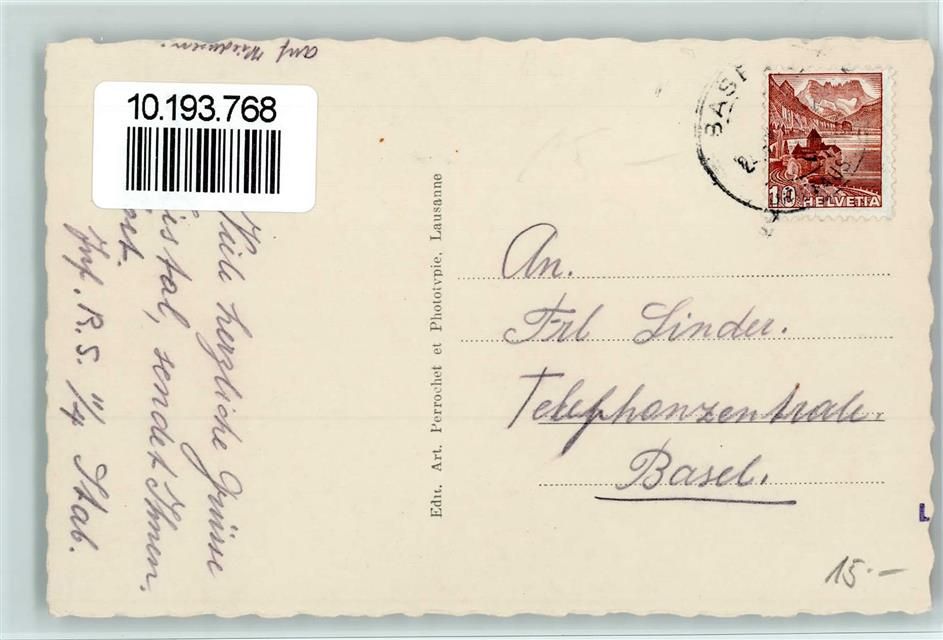 auf Wiedersehn.
10.193.768
Viele herzliche Grüsse
istal, sendet Ihnen.
Inf. R. S. II/4 Stab.
Edit. Art. Perrochet et Phototypie, Lausanne
BAS
10 HELVETIA
An.
Frl Linder.
Telephonzentrale
Basel.
15.-